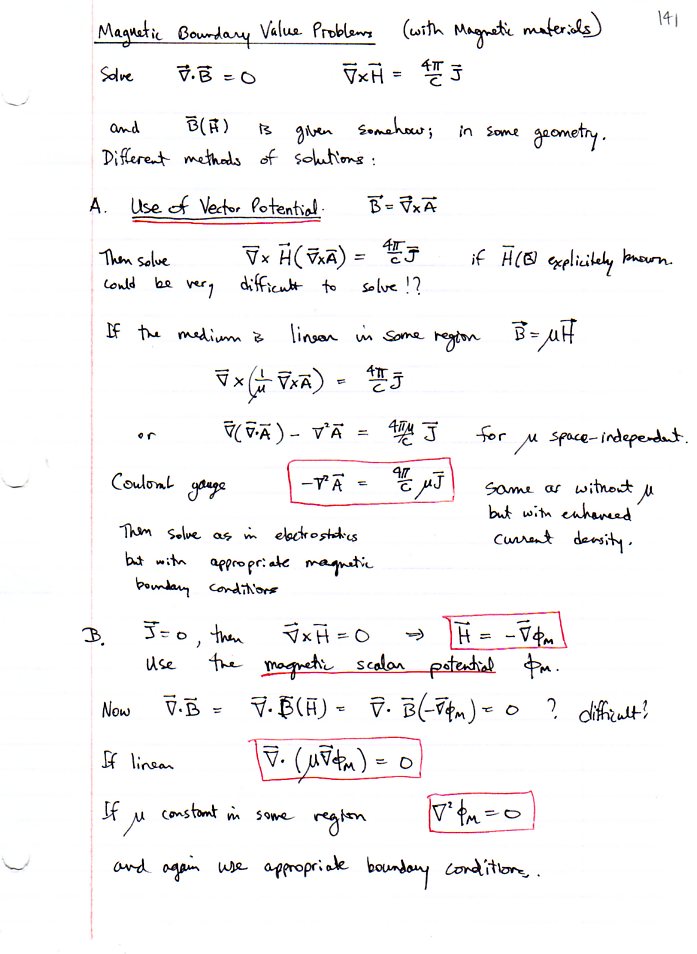 141
Magnetic Boundary Value Problems (with Magnetic materials)
Solve ∇⃗·B⃗ = 0 ∇⃗×H⃗ = 4π/c J⃗
and B⃗(H⃗) is given somehow; in some geometry.
Different methods of solutions:
A. Use of Vector Potential. B⃗ = ∇⃗×A⃗
Then solve ∇⃗× H⃗(∇⃗×A⃗) = 4π/c J⃗ if H⃗(B⃗) explicitely known.
could be very difficult to solve!?
If the medium is linear in some region B⃗ = μH⃗
∇⃗×(1/μ ∇⃗×A⃗) = 4π/c J⃗
or ∇⃗(∇⃗·A⃗) - ∇²A⃗ = 4πμ/c J⃗ for μ space-independent.
Coulomb gauge -∇²A⃗ = 4π/c μJ⃗ same as without μ
but with enhanced
current density.
Then solve as in electrostatics
but with appropriate magnetic
boundary conditions
B. J⃗=0, then ∇⃗×H⃗ = 0 ⇒ H⃗ = -∇⃗ϕ_M
Use the magnetic scalar potential ϕ_M.
Now ∇⃗·B⃗ = ∇⃗·B⃗(H⃗) = ∇⃗·B⃗(-∇⃗ϕ_M) = 0 ? difficult?
If linear ∇⃗·(μ∇⃗ϕ_M) = 0
If μ constant in some region ∇²ϕ_M = 0
and again use appropriate boundary conditions.